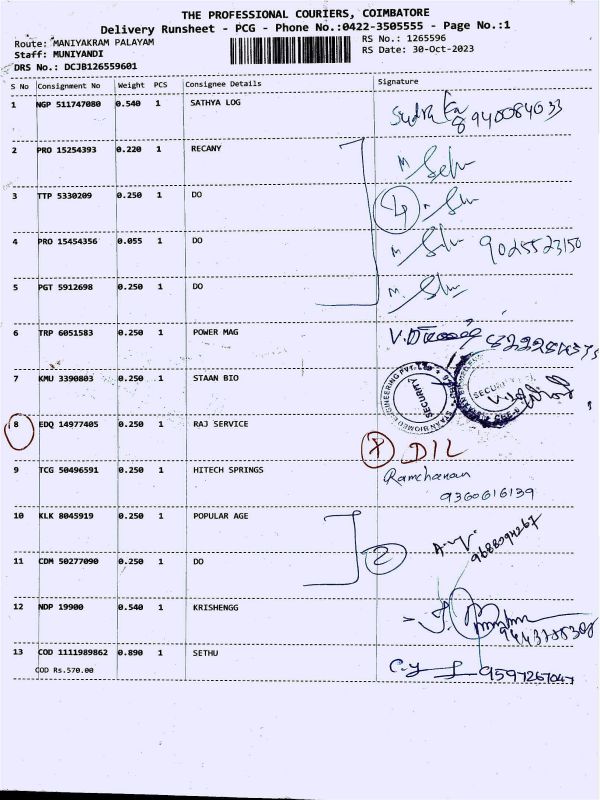 THE PROFESSIONAL COURIERS, COIMBATORE
Delivery Runsheet - PCG - Phone No.:0422-3505555 - Page No.:1
Route: MANIYAKRAM PALAYAM
RS No.: 1265596
Staff: MUNIYANDI
RS Date: 30-Oct-2023
DRS No.: DCJB126559601
S No Consignment No Weight PCS Consignee Details Signature
1 NGP 511747080 0.540 1 SATHYA LOG
2 PRO 15254393 0.220 1 RECANY M
3 TTP 5330209 0.250 1 DO 4
4 PRO 15454356 0.055 1 DO M 9025523150
5 PGT 5912698 0.250 1 DO M.
6 TRP 6051583 0.250 1 POWER MAG
7 KMU 3390803 0.250 1 STAAN BIO
SECURITY
8 EDQ 14977405 0.250 1 RAJ SERVICE DIL
9 TCG 50496591 0.250 1 HITECH SPRINGS
9360616139
10 KLK 8045919 0.250 1 POPULAR AGE 2
11 CDM 50277090 0.250 1 DO
12 NDP 19900 0.540 1 KRISHENGG
13 COD 1111989862 0.890 1 SETHU 9597267047
COD Rs.570.00